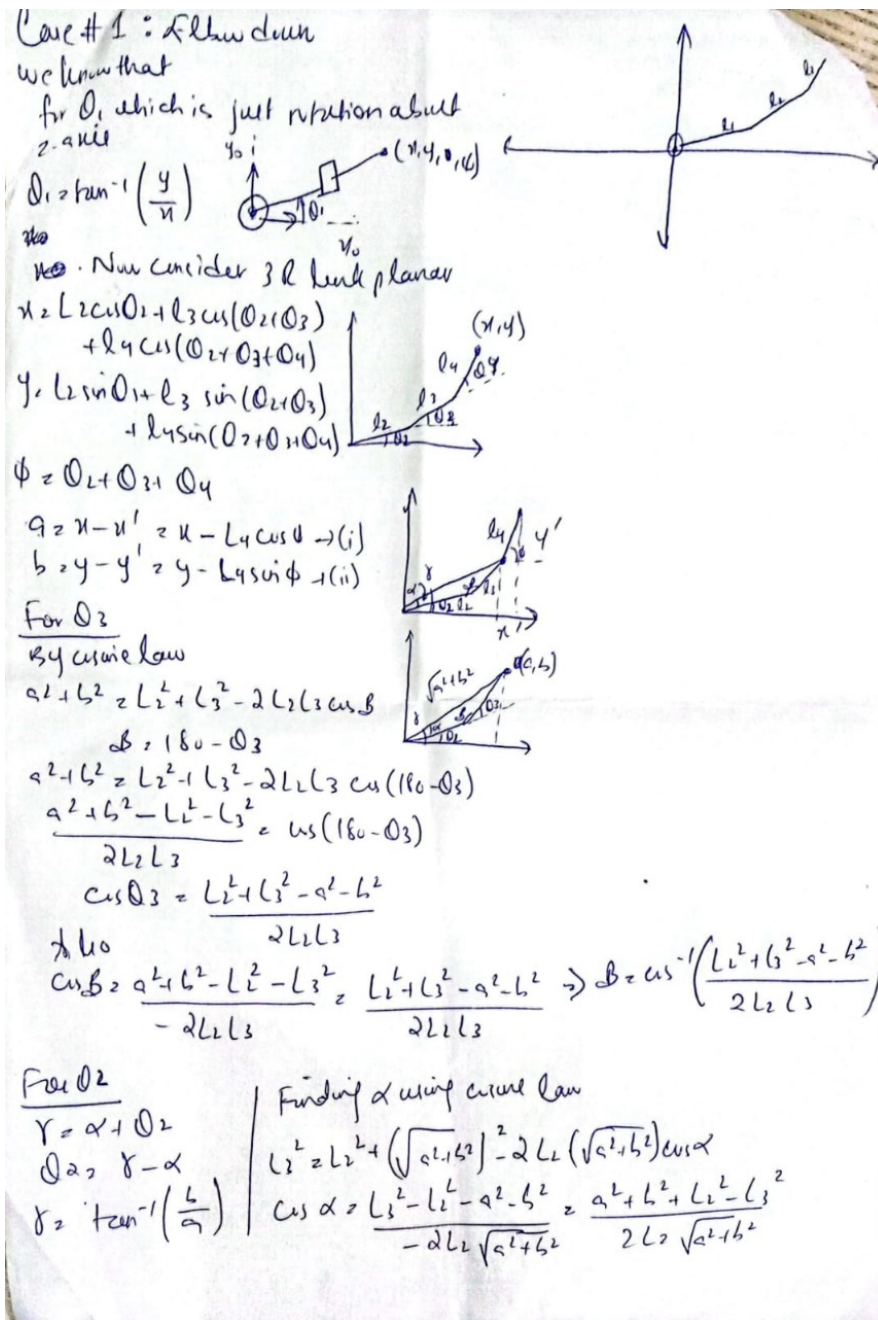 Case # 1 : Elbow down
we know that
for θ₁ which is just rotation about
z-axis
θ₁ = tan⁻¹ (y/x)
y₀
(x, y, 0, φ)
θ₁
x₀
l₁ l₂ l₃
Now consider 3R link planar
x = L2cosθ2 + l3cos(θ2+θ3)
+ l4cos(θ2+θ3+θ4)
y = L2sinθ1 + l3 sin(θ2+θ3)
+ l4sin(θ2+θ3+θ4)
(x, y)
l4 θ4
l3 θ3
l2 θ2
ϕ = θ2 + θ3 + θ4
a = x - x' = x - L4cosϕ → (i)
b = y - y' = y - L4sinϕ → (ii)
l4 y'
α γ θ2 l2 β l3 ϕ
x'
For θ3
By cosine law
a² + b² = L2² + L3² - 2L2L3 cosB
B = 180 - θ3
√a²+b² (a, b)
γ α θ2 β θ3
a² + b² = L2² + L3² - 2L2L3 cos(180 - θ3)
(a² + b² - L2² - L3²)/(2L2L3) = cos(180 - θ3)
cosθ3 = (L2² + L3² - a² - b²)/(2L2L3)
Also
cosB = (a² + b² - L2² - L3²)/(-2L2L3) = (L2² + L3² - a² - b²)/(2L2L3) ⇒ B = cos⁻¹ ((L2² + l3² - a² - b²)/(2L2L3))
For θ2
γ = α + θ2
θ2 = γ - α
γ = tan⁻¹ (b/a)
Finding α using cosine law
L3² = L2² + (√a²+b²)² - 2L2 (√a²+b²) cosα
cos α = (L3² - L2² - a² - b²)/(-2L2 √a²+b²) = (a² + b² + L2² - L3²)/(2L2 √a²+b²)